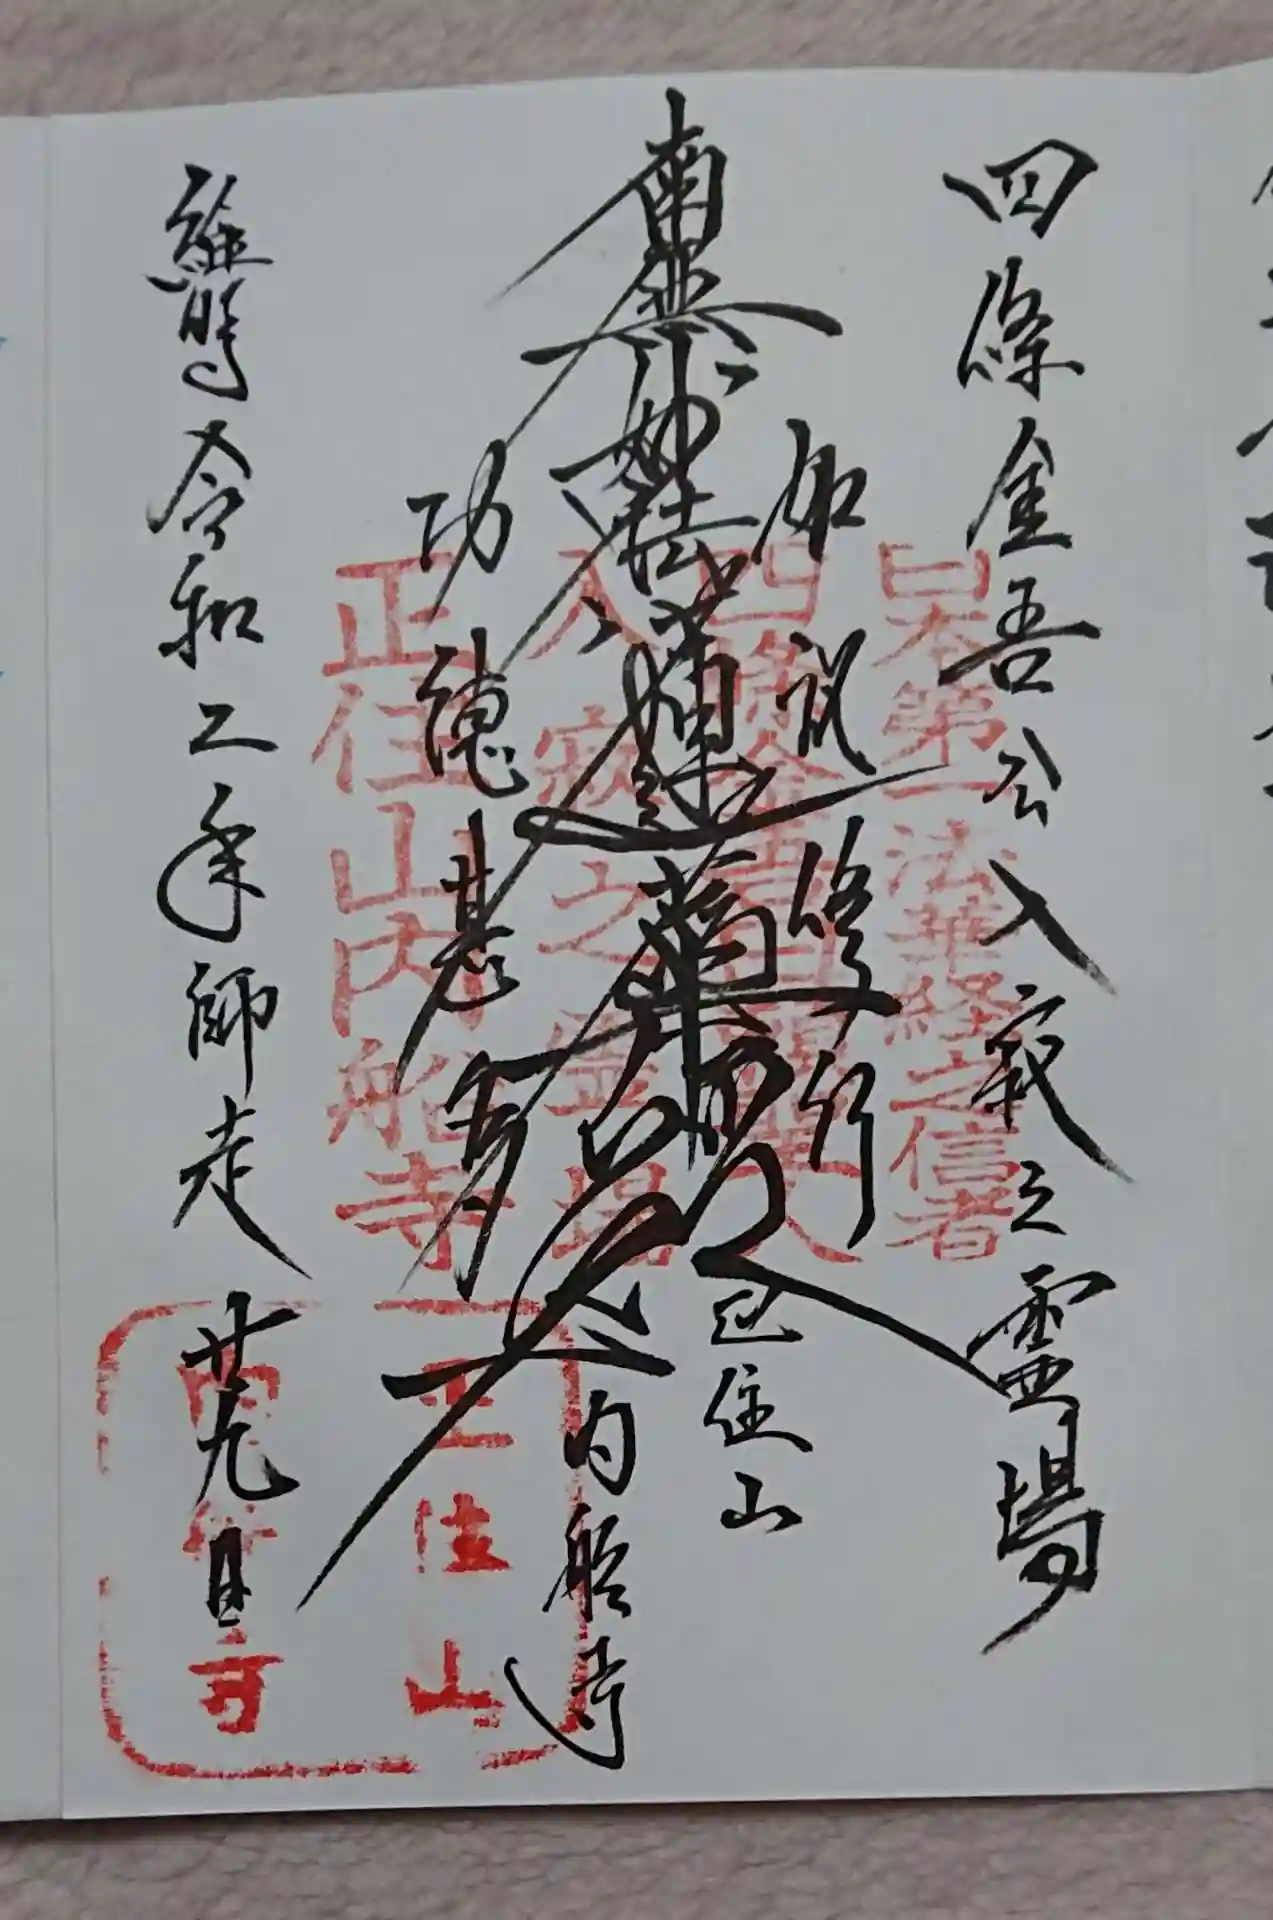 四條金吾公入寂之霊場
如説修行
南無妙法蓮華経
功徳甚多
正住山
内船寺
維時令和二年師走廿九日
日本第一法華経之信者
四條金吾頼基
入寂之霊場
正住山内船寺
正住山
内船寺